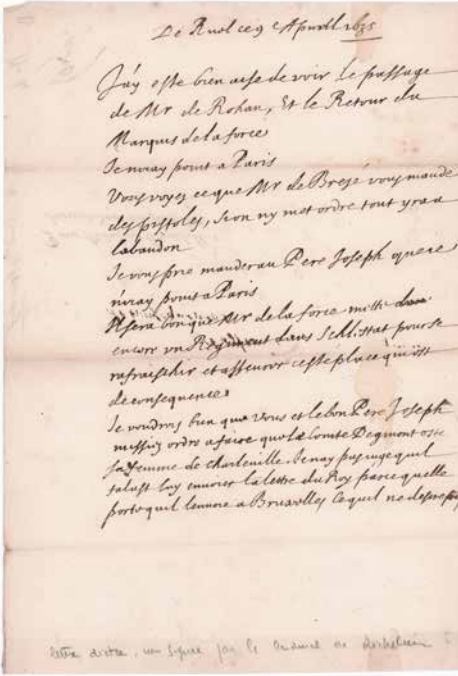 De Ruel ce 9 Apvril 1635
J'ay esté bien aise de voir le passage
de Mr de Rohan, Et le Retour du
Marquis de la force
Je niray point a Paris
Vous voyez ce que Mr de Bresé vous mande
des pistoles, si on ny met ordre tout yra a
labandon
Je vous prie mander au Pere Joseph que je
niray point a Paris
Il sera bon que Mr de la force mette dans
encore un Regiment dans Schlistat pour se
rafraischir et asseurer ceste place qui est
de consequence
Je voudrois bien que vous et le bon Pere Joseph
missiez ordre a faire que le Comte Degmont oste
sa femme de Charleville Je nay pas jugé quil
falust luy envoier la lettre du Roy parce quelle
porte quil lenvoie a Bruxelles ce quil ne
lettre dictée, non signée par le Cardinal de Richelieu